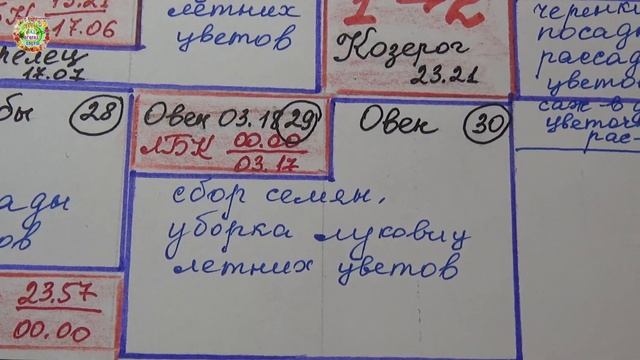 15.21
17.06
летних
цветов
1
2
Козерог
23.21
17.07
посадк
рассад
цветов
саж-в
цветоч
рас-
28
Овен 03.18 29
ЛБК 00.00
03.17
Овен 30
сбор семян,
уборка луковиц
летних цветов
ады
ов
23.57
00.00